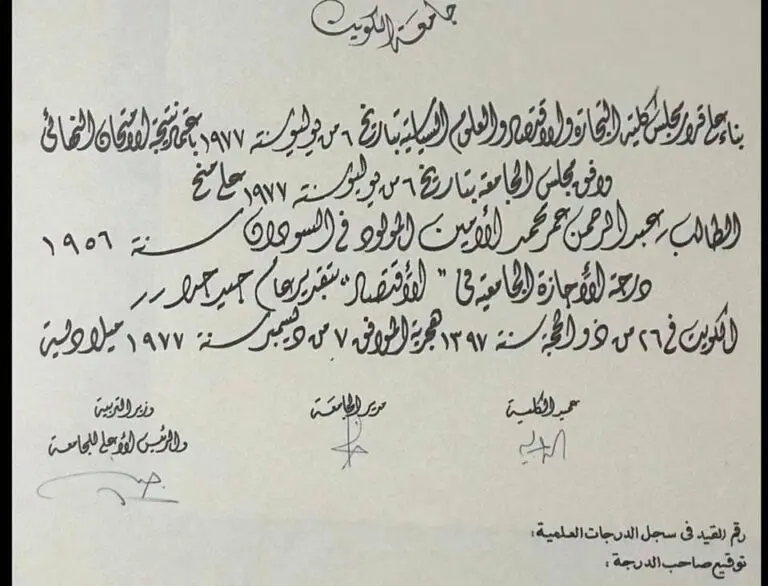 جامعة الكويت
بناء على قرار مجلس كلية التجارة والاقتصاد والعلوم السياسية بتاريخ ٦ من يوليو سنة ١٩٧٧ باعتماد نتيجة الامتحان النهائي
وافق مجلس الجامعة بتاريخ ٦ من يوليو سنة ١٩٧٧ على منح
الطالب / عبد الرحمن عمر محمد الأمين المولود في السودان سنة ١٩٥٦
درجة الأجازة الجامعية في " الأقتصاد " بتقدير عام جيد جدا
الكويت في ٢٦ من ذو الحجة سنة ١٣٩٧ هجرية الموافق ٧ من ديسمبر سنة ١٩٧٧ ميلادية
عميد الكلية
مدير الجامعة
وزير التربية
والرئيس الأعلى للجامعة
رقم القيد فى سجل الدرجات العلمية :
توقيع صاحب الدرجة :